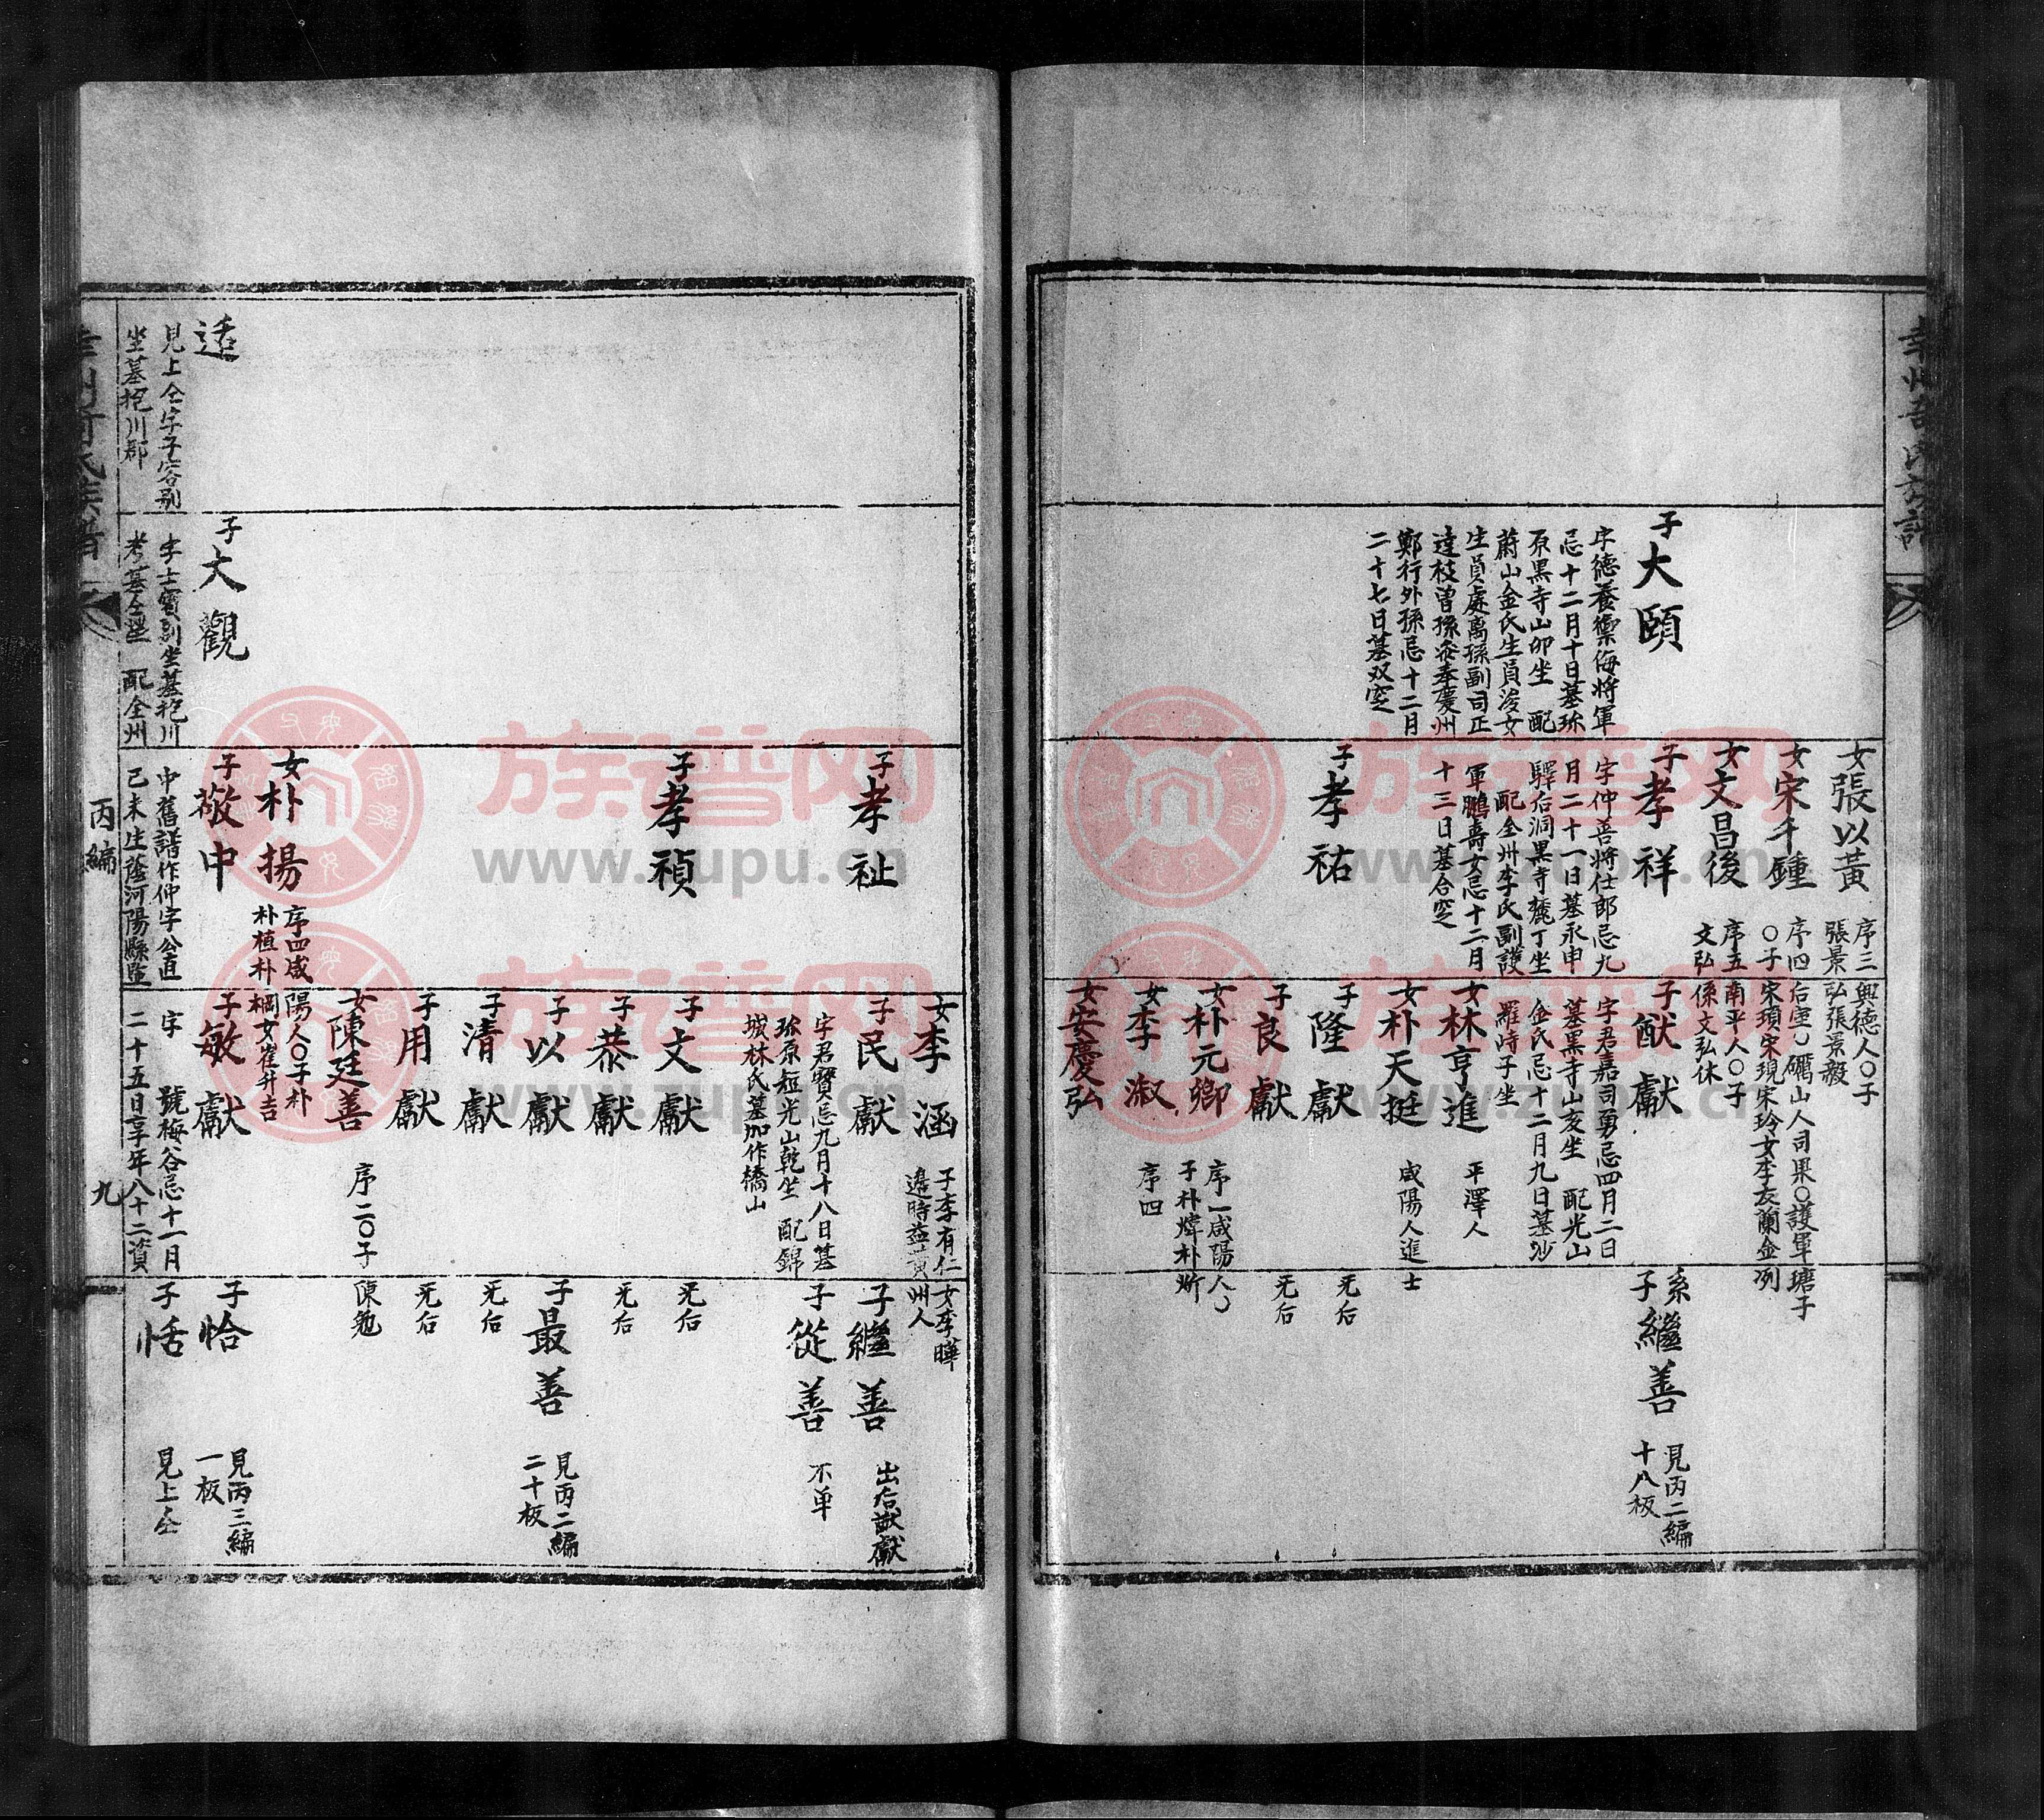 幸州奇氏族譜
女張以黃
序三興德人〇子
張景弘張景毅
女宋千鍾
序四后室〇礪山人司果〇護軍瑭子
〇子宋瑣宋現宋玲女李友蘭金冽
女文昌後
序五南平人〇子
文弘係文弘休
子大頤
字德養禦侮將軍
忌十二月十日墓珍
原黑寺山卯坐 配
蔚山金氏生員浚女
生員處离孫副司正
達枝曾孫參奉慶州
鄭行外孫忌十二月
二十七日墓双窆
子孝祥
字仲善將仕郎忌九
月二十一日墓永申
驛后洞黑寺麓丁坐
配全州李氏副護
軍鵬壽女忌十二月
十三日墓合窆
子猷獻
字君嘉司勇忌四月二日
墓黑寺山亥坐 配光山
金氏忌十二月九日墓沙
羅峙子坐
系
子繼善
見丙二編
十八板
女林亨進
平澤人
女朴天挺
咸陽人進士
子孝祐
子隆獻
无后
子良獻
无后
女朴元卿
序一咸陽人〇
子朴煒朴炘
女李淑
序四
女安慶弘
女李涵
子李有仁女李曄
邊時益黃州人
子孝祉
子民獻
字君贒忌九月十八日墓
珍原短光山乾坐 配錦
城林氏墓加作橋山
子繼善
出后猷獻
子從善
不单
子孝禎
子文獻
无后
子恭獻
无后
子以獻
子最善
見丙二編
二十板
子清獻
无后
子用獻
无后
女陳廷善
序二〇子陳勉
女朴揚
序四咸陽人〇子朴
朴植朴棡女崔升吉
适
見上仝字子容别
坐墓抱川郡
子大觀
字士賓别坐墓抱川
考墓仝塋 配全州
子敬中
中舊譜作仲字公直
己未生蔭河陽縣監
子敏獻
字 號梅谷忌十一月
二十五日享年八十二資
子恰
見丙三編
一板
子恬
見上仝
幸州奇氏族譜
丙編
九
族谱网
www.zupu.cn
族谱网
www.zupu.cn
族谱网
www.zupu.cn
族谱网
www.zupu.cn